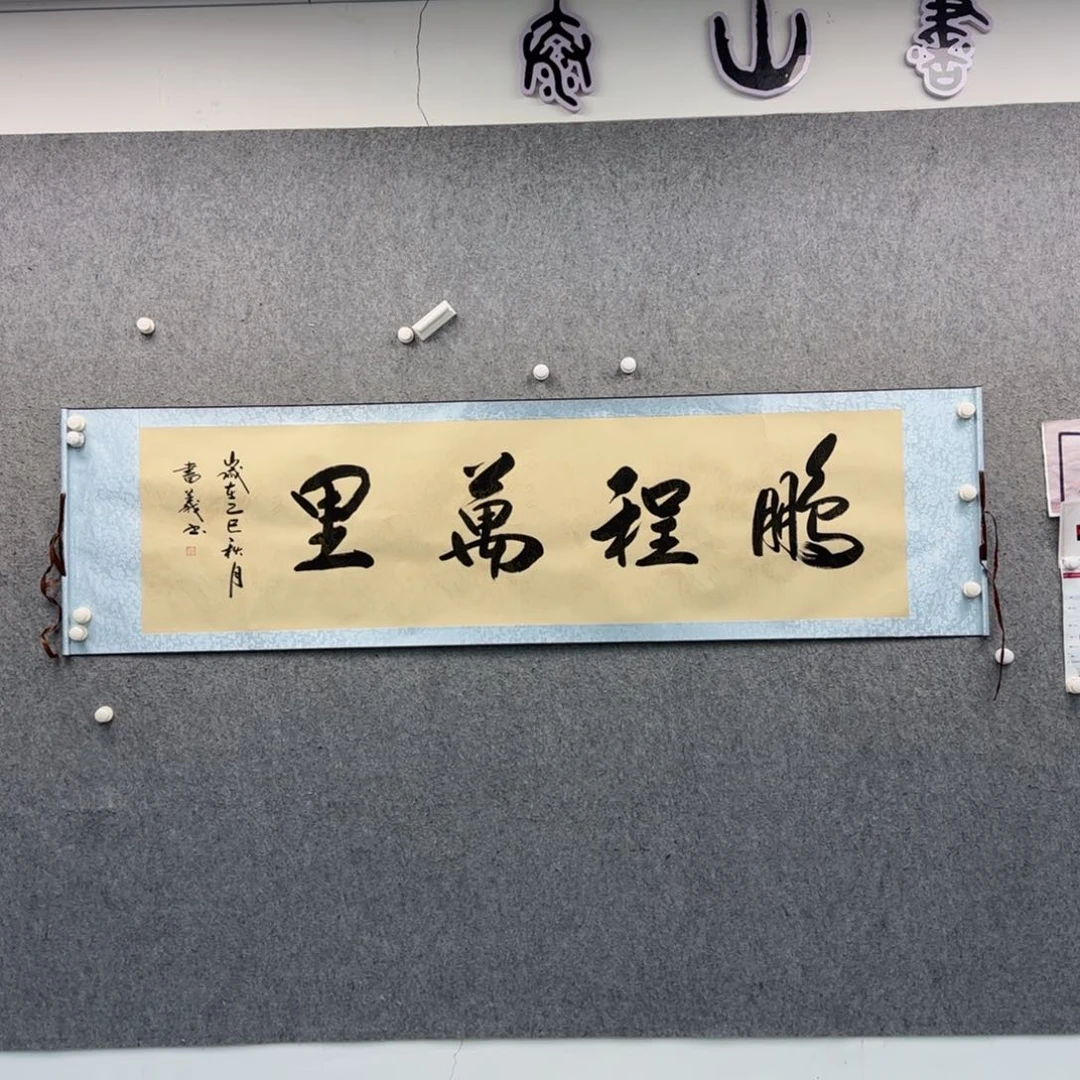 鵬程萬里
歲在乙巳秋月
書義书
山